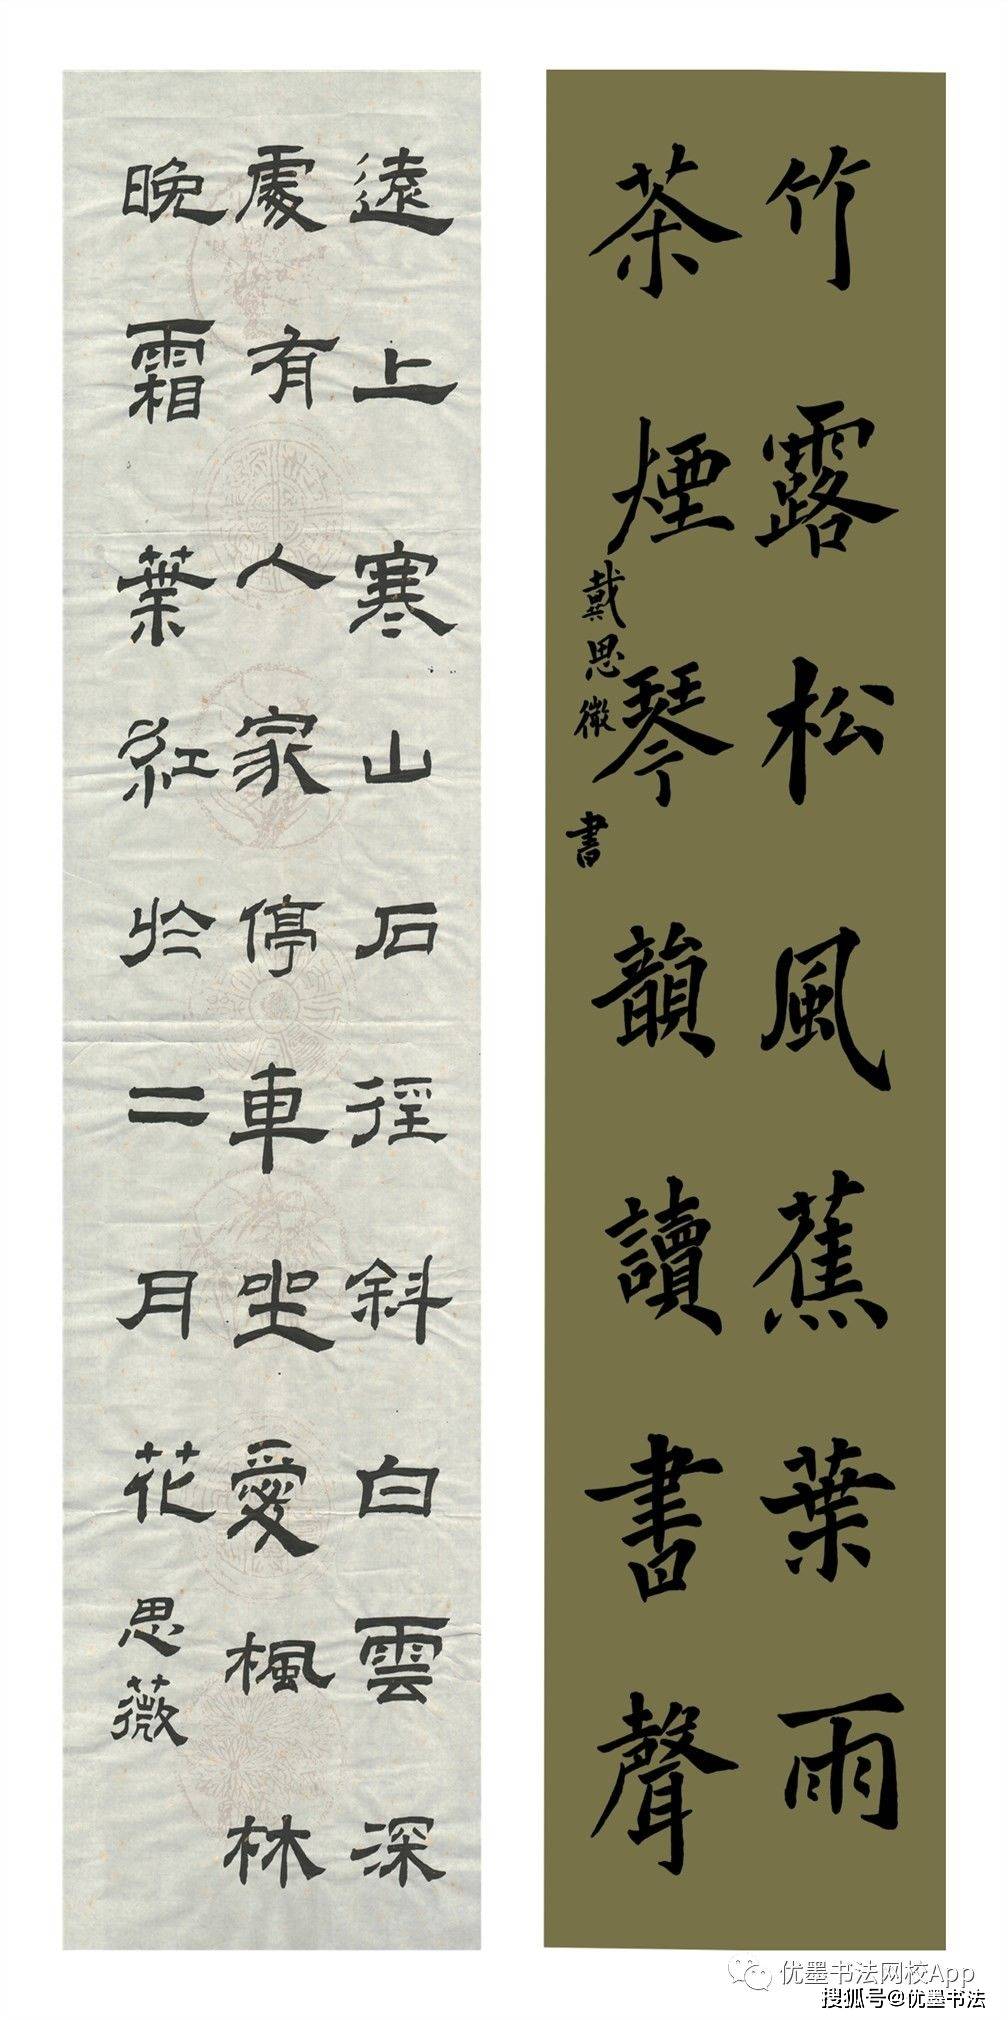 竹露松風蕉葉雨
茶煙琴韻讀書聲
戴思微書
遠上寒山石徑斜白雲深
處有人家停車坐愛楓林
晚霜葉紅於二月花
思薇
优墨书法网校App
搜狐号@优墨书法